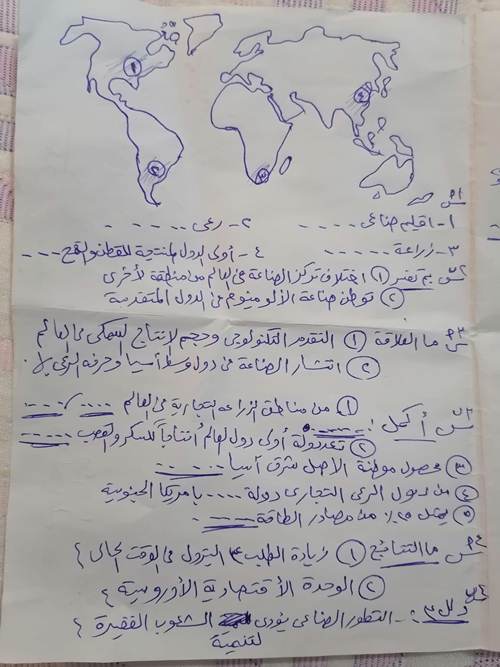 ١
٤
٢
٣
س١
١- اقليم صناعى ..... ٢- رعى .....
٣- زراعة ..... ٤- أولى الدول المنتجة للقطن والقمح ...
س٢ بم تفسر ① اختلاف تركز الصناعة فى العالم من منطقة لأخرى
② توطن صناعة الألومنيوم فى الدول المتقدمة
س٣ ما العلاقة ① التقدم التكنولوجى وحجم الإنتاج السمكى فى العالم
② انتشار الصناعة فى دول وسط آسيا وحرفة الرعى بها.
س٣ أكمل :- ① من مناطق الزراعة التجارية فى العالم ..... / .....
② تعد دولة أولى دول العالم إنتاجاً للسكر والقصب .....
③ محصول موطنة الأصل شرق آسيا .....
④ من دول الرعى التجارى دولة ..... بأمريكا الجنوبية
⑤ يمثل ٢٥٪ من مصادر الطاقة .....
س٤ ما النتائج ① زيادة الطلب ع البترول فى الوقت الحالى
② الوحدة الأقتصادية الأوروبية
دلل :- التطور الصناعى يؤدى لتنمية الشعوب الفقيرة